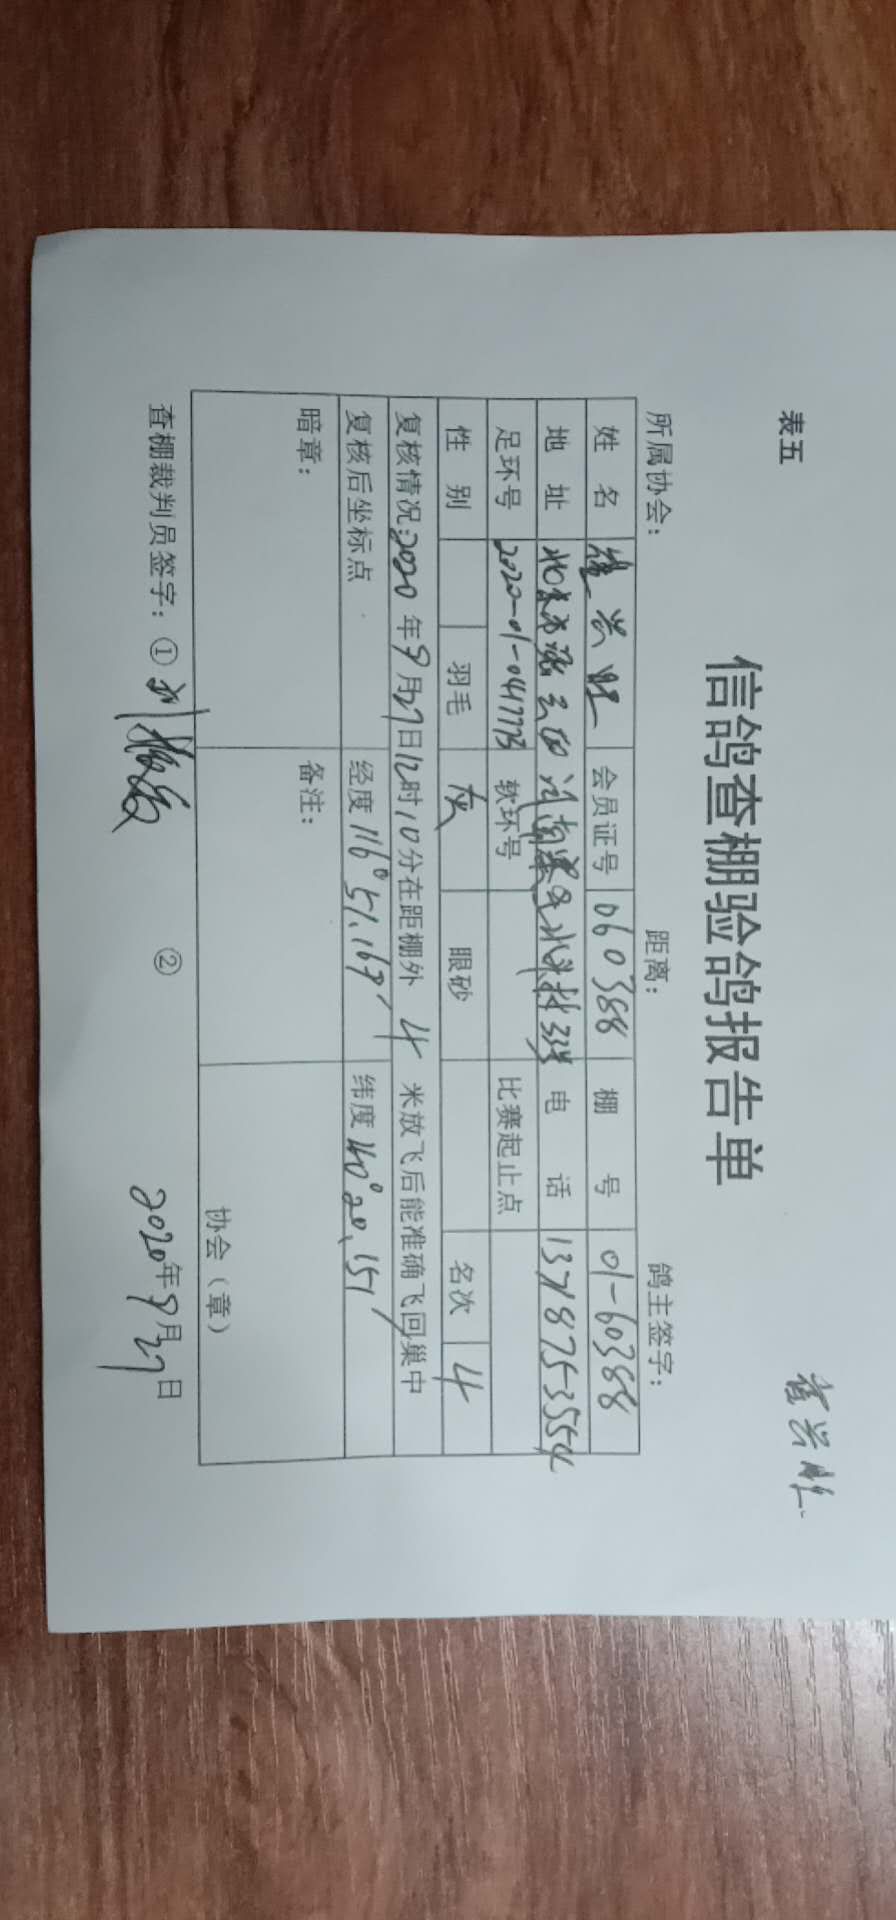 表五
信鸽查棚验鸽报告单
所属协会： 距离： 鸽主签字：
姓 名 崔兴旺 会员证号 060388 棚 号 01-60388
地 址 北京市密云 河南寨 村 334 电 话 13718753554
足环号 2020-01-0417773 软环号 比赛起止点
性 别 羽毛 灰 眼砂 名次 4
复核情况：2020年9月27日12时10分在距棚外 4 米放飞后能准确飞回巢中
复核后坐标点 经度116°51.163′ 纬度40°20.151′
暗章： 备注： 协会（章）
查棚裁判员签字：① 刘 ② 2020年9月27日